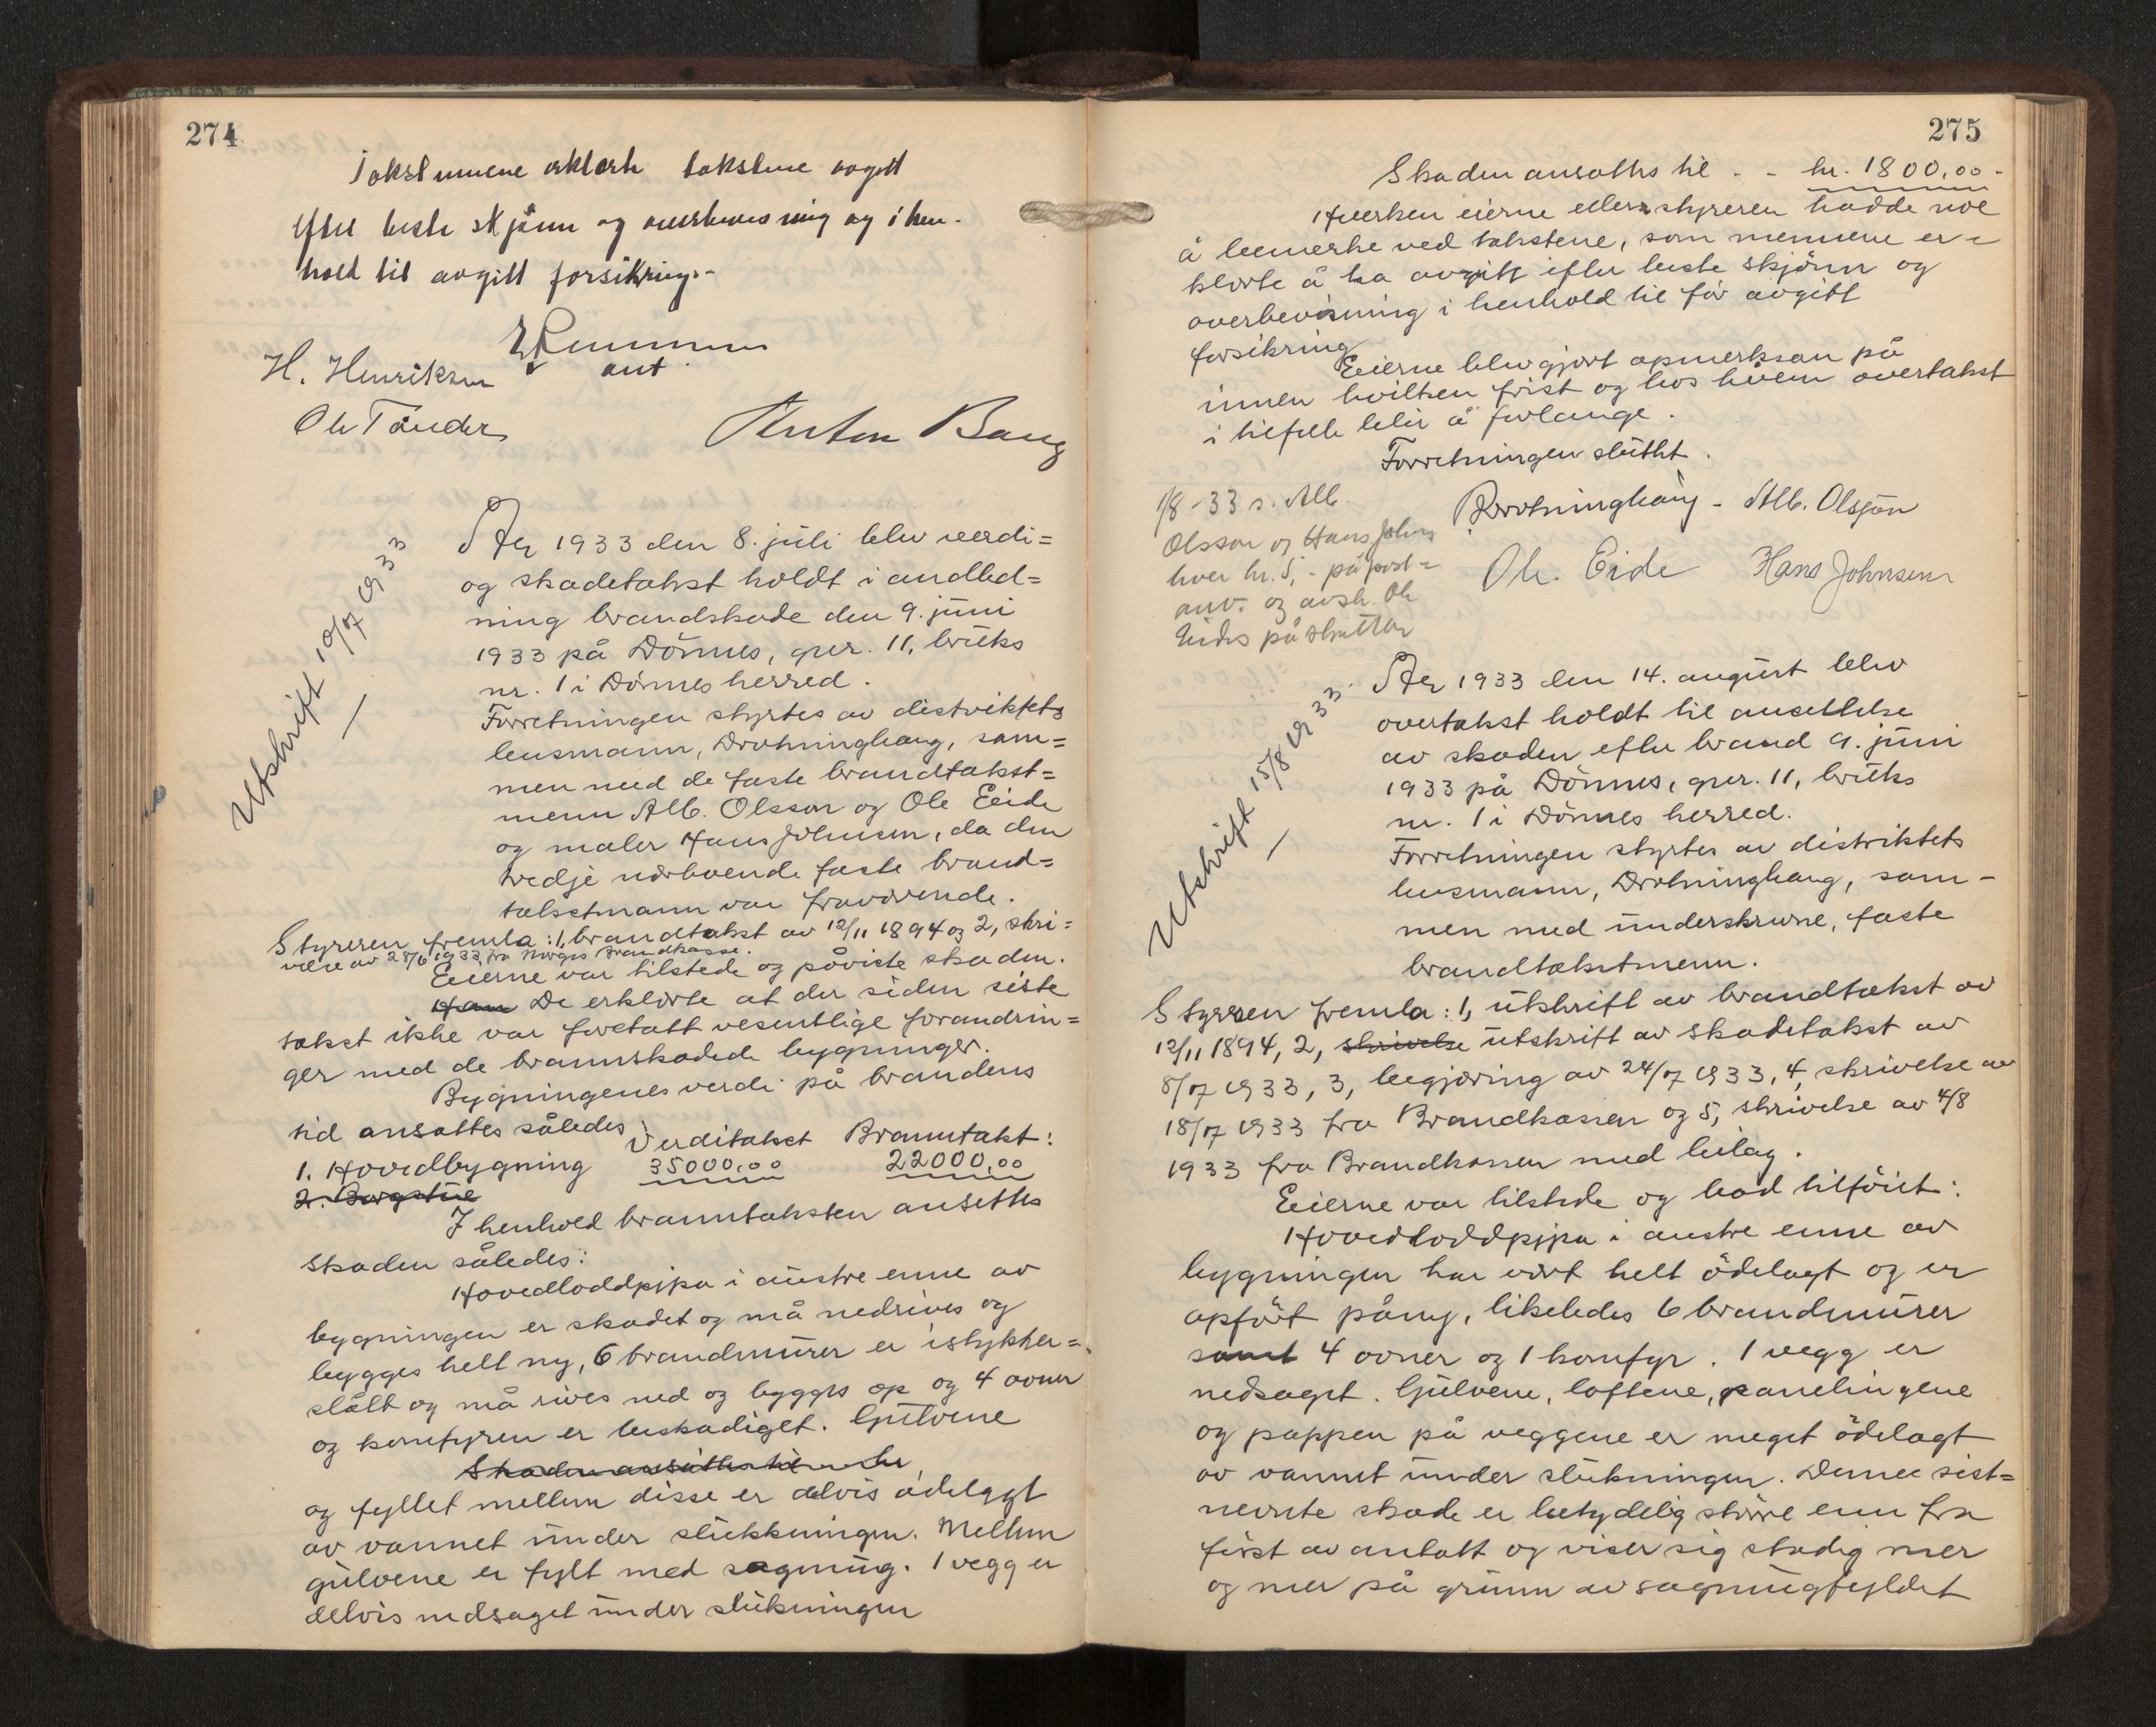 274
Takstmenene erklærte takstene avgitt
efter beste skjønn og overbevisning og i hen-
hold til avgitt forsikring.-
ant
H. Henriksen
Ole Tånder
Anton Bang
Utskrift 10/7 1933
År 1933 den 8. juli blev verdi=
og skadetakst holdt i anled=
ning brandskade den 9. juni
1933 på Dönnes, gnr. 11, bruks
nr. 1 i Dönnes herred.
Forretningen styrtes av distriktets
lensmann, Drotninghaug, sam=
men med de faste brandtakst=
menn Alb. Olsson og Ole Eide
og maler Hans Johnsen, da den
tredje nærboende faste brand=
takstmann var fraværende.
Styreren fremla: 1, brandtakst av 12/11 1894 og 2, skri=
velse av 28/6 1933 fra Norges Brandkasse.
Eierne var tilstede og påviste skaden.
Han De erklærte at der siden siste
takst ikke var foretatt vesentlige forandrin=
ger med de brannskadede bygninger.
Bygningenes verdi på brandens
tid ansattes således:
Verditakst Branntakst:
1. Hovedbygning 35000,00 22000,00
2. Borgstue
I henhold branntaksten ansettes
skaden således:
Hovedloddpipa i austre enne av
bygningen er skadet og må nedrives og
bygges helt ny, 6 brandmurer er istykker=
slått og må rives ned og bygges op og 4 ovner
og komfyren er beskadiget. Gulvene
Skaden ansættes til kr
og fyllet mellem disse er delvis ödelagt
av vannet under slukkningen. Mellem
gulvene er fylt med sagmug. 1 vegg er
delvis nedsaget under slukningen
275
Skaden ansattes til - - kr. 1800,00-
Hverken eierne eller styreren hadde noe
å bemerke ved takstene, som mennene er=
klærte å ha avgitt efter beste skjönn og
overbevisning i henhold til för avgitt
forsikring
Eierne blev gjort opmerksom på
innen hvilken frist og hos hvem overtakst
i tilfelle blir å forlange.
Forretningen sluttet.
1/8-33 s. Alb.
Olsson og Hans Johns
hver kr. 5,- på post=
anv. og avsk. Ole
Eides på skatten
Drotninghaug - Alb. Olsson
Ole. Eide Hans Johnsen
Utskrift 15/8 1933
År 1933 den 14. august blev
overtakst holdt til ansettelse
av skaden efter brand 9. juni
1933 på Dönnes, gnr. 11, bruks
nr. 1 i Dönnes herred.
Forretningen styrtes av distriktets
lensmann, Drotninghaug, sam-
men med underskrevne, faste
brandtakstmenn.
Styreren fremla: 1, utskrift av brandtakst av
12/11 1894, 2, skrivelse utskrift av skadetakst av
8/7 1933, 3, begjæring av 24/7 1933, 4, skrivelse av
18/7 1933 fra Brandkassen og 5, skrivelse av 4/8
1933 fra Brandkassen med bilag.
Eierne var tilstede og bad tilföiet:
Hovedloddpipa i austre enne av
bygningen har vært helt ödelagt og er
opfört påny, likeledes 6 brandmurer
samt 4 ovner og 1 komfyr. 1 vegg er
nedsaget. Gulvene, loftene, panelingene
og pappen på veggene er meget ödelagt
av vannet under slukningen. Denne sist=
nevnte skade er betydelig större enn fra
först av antatt og viser sig stadig mer
og mer på grunn av sagmugfyldet